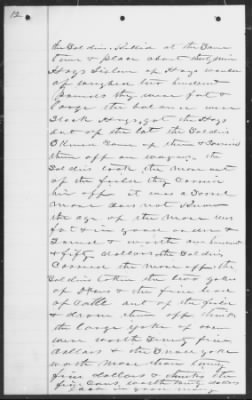 12
the Soldiers killed at the same
time & place about
Hogs of Hogs would
of weighed two hundred
pounds they were fat &
large the balance were
Stock Hogs, got the Hogs
out of the lot the Soldiers
came up them & carried
them off on wagons. the
Soldiers took the mare out
of the field they carried
her off it was a Sorrel
mare does not know
the age of the mare was
fat & in good order &
Sound & worth one hundred
& fifty dollars the Soldiers
Carried the mare off the
Soldiers taken the two yoke
of Oxen & the five head
of Cattle out of the field
& drove them off thinks
the large yoke of oxen
were worth Seventy five
dollars & the Small yoke
worth more than
five dollars & thinks the
five Cows, worth